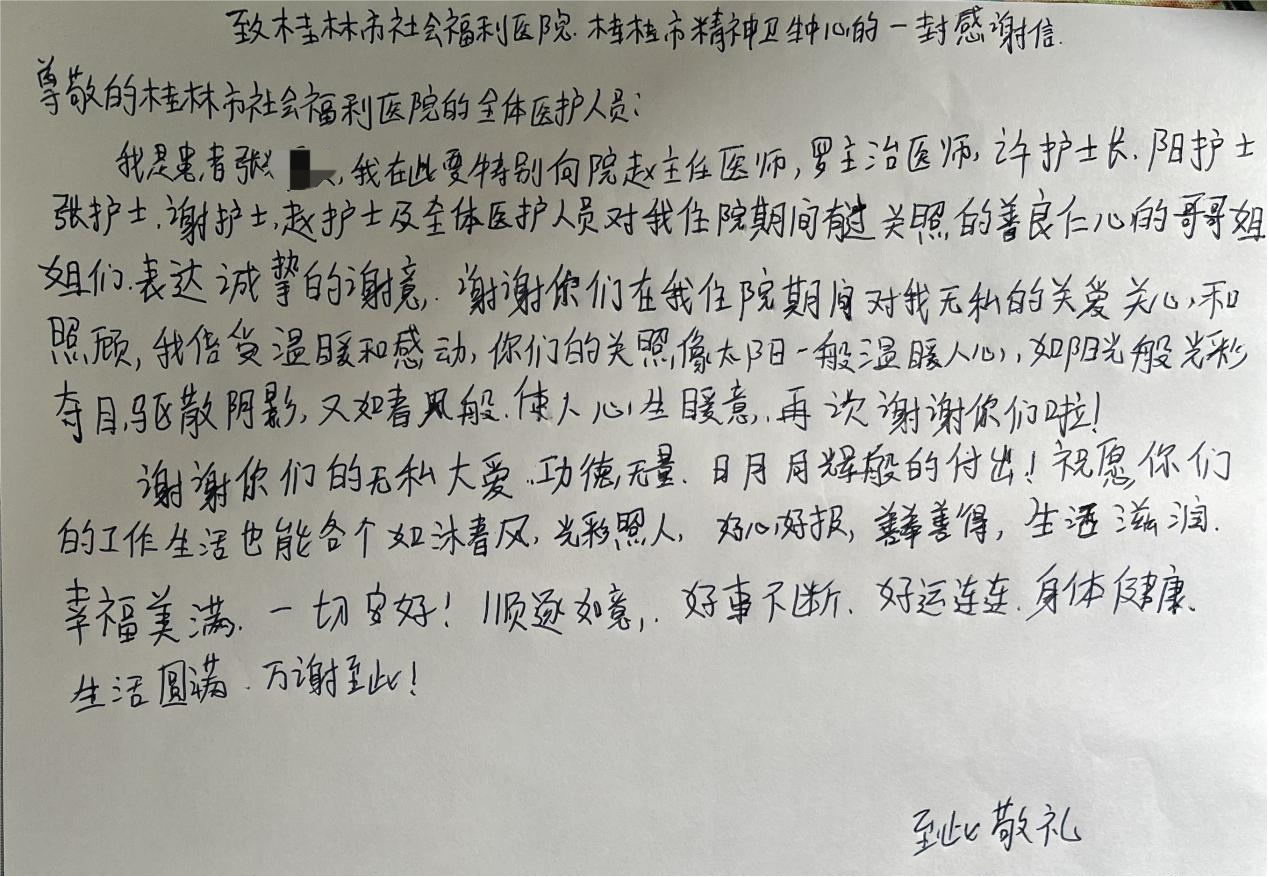 致桂林市社会福利医院.桂桂市精神卫生中心的一封感谢信.
尊敬的桂林市社会福利医院的全体医护人员:
我是患者张,我在此要特别向院赵主任医师,罗主治医师,许护士长.阳护士
张护士.谢护士,赵护士及全体医护人员对我住院期间有过关照的善良仁心的哥哥姐
姐们.表达诚挚的谢意,.谢谢你们在我住院期间对我无私的关爱关心,和
照顾,我倍受温暖和感动,你们的关照像太阳一般温暖人心,如阳光般光彩
夺目,驱散阴影,又如春风般.使人心生暖意,.再次谢谢你们啦!
谢谢你们的无私大爱.功德无量.日月月辉般的付出!祝愿你们
的工作生活也能各个如沐春风,光彩照人,好心好报,善善得,生活滋润.
幸福美满.一切安好!顺遂如意,.好事不断.好运连连.身体健康.
生活圆满.万谢至此!
至此敬礼